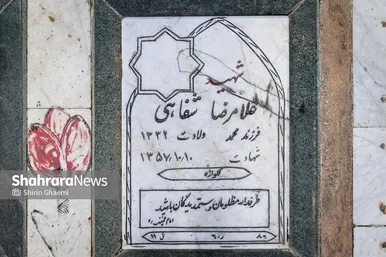 شهید
غلامرضا شفاهی
فرزند محمد ولادت ۱۳۳۲
شهادت ۱۳۵۷/۱۰/۱۰
طرفدار مظلومان و ستمدیدگان باشید
امام خمینی ره
ShahraraNews
Shirin Ghaemi